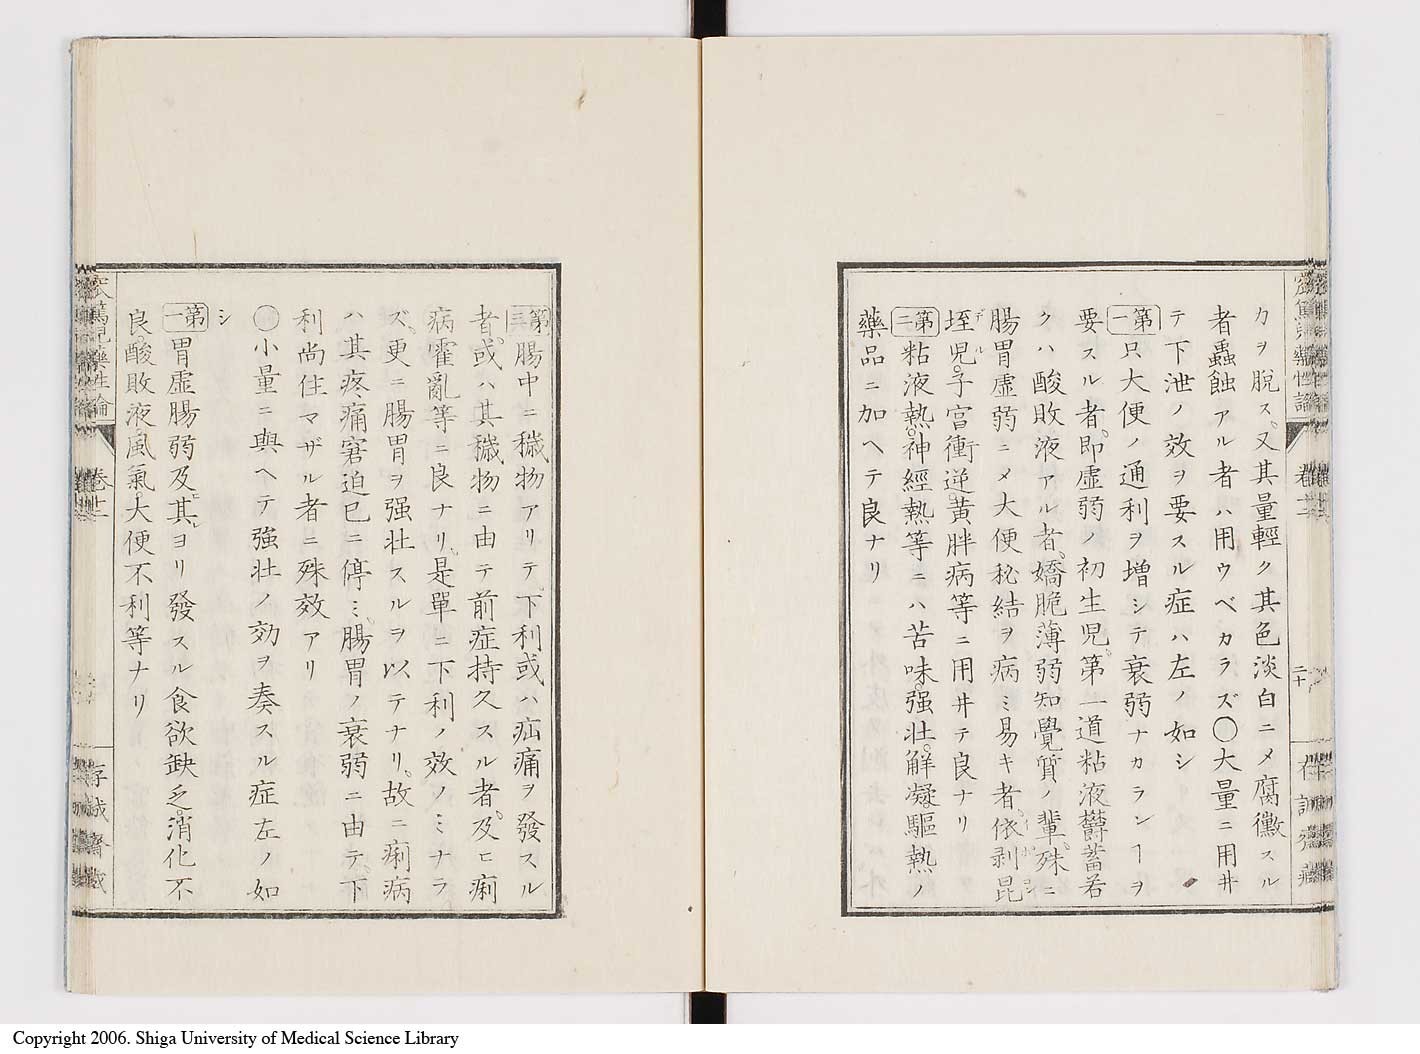 カヲ脱ス。又其量輕ク其色淡白ニメ腐黴スル
者蟲蝕アル者ハ用ウベカラズ〇大量ニ用井
テ下泄ノ效ヲ要スル症ハ左ノ如シ
第一只大便ノ通利ヲ增シテ衰弱ナカランヿヲ
要スル者。即虛弱ノ初生兒。第一道粘液欝蓄若
クハ酸敗液アル者。嬌脆薄弱知覺質ノ輩。殊ニ
腸胃虛弱ニメ大便秘結ヲ病ミ易キ者。依剥昆
垤児。子宮衝逆。黄胖病等ニ用井テ良ナリ
第二粘液熱。神經熱等ニハ苦味。强壯。解凝。驅熱ノ
藥品ニ加ヘテ良ナリ
窊篤児藥性論
卷十二
二十
第三腸中ニ穢物アリテ、下利或ハ疝痛ヲ發スル
者。或ハ其穢物ニ由テ前症持久スル者。及ヒ痢
病霍亂等ニ良ナリ。是單ニ下利ノ效ノミナラ
ズ。更ニ腸胃ヲ强壯スルヲ以テナリ。故ニ痢病
ハ其疼痛窘迫已ニ停ミ、腸胃ノ衰弱ニ由テ、下
利尚住マザル者ニ殊效アリ
〇小量ニ與ヘテ強壮ノ効ヲ奏スル症左ノ如
シ
第一胃虛腸弱及ヒ其レヨリ發スル食欲缺乏。消化不
良。酸敗液。風氣。大便不利等ナリ
窊篤児藥性論
卷十二
存誠齋藏
Copyright 2006. Shiga University of Medical Science Library